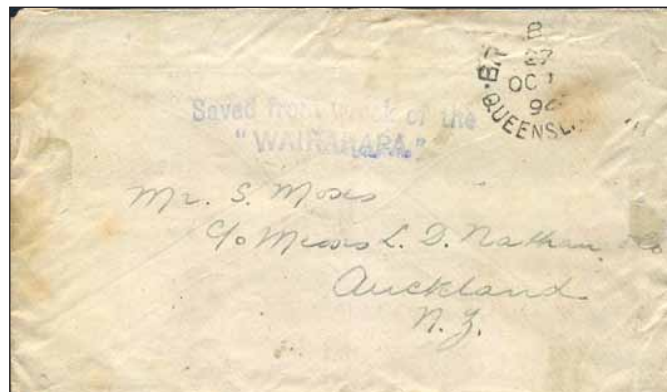 B
27
OC
94
QUEENSL
Saved from wreck of the
"WAIRARAPA"
Mr. S. Moses
c/o Messrs L. D. Nathan & Co
Auckland
N. Z.